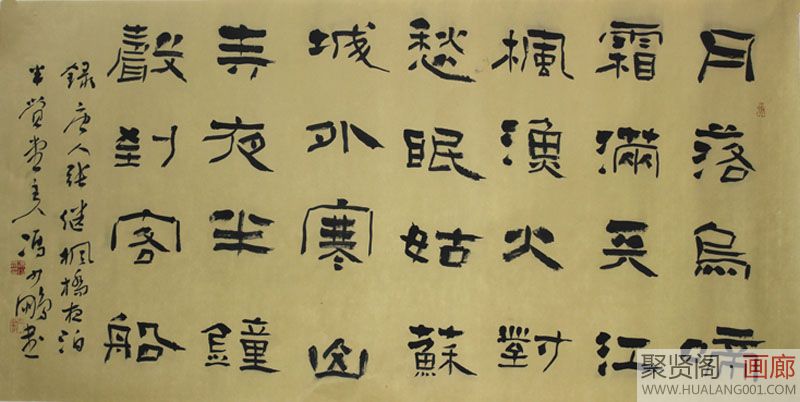 月落烏啼
霜滿天江
楓漁火對
愁眠姑蘇
城外寒山
寺夜半鐘
聲到客船
錄唐人張繼楓橋夜泊
半堂主人馮少鵬書
聚贤阁|画廊
WWW.HUALANG001.COM